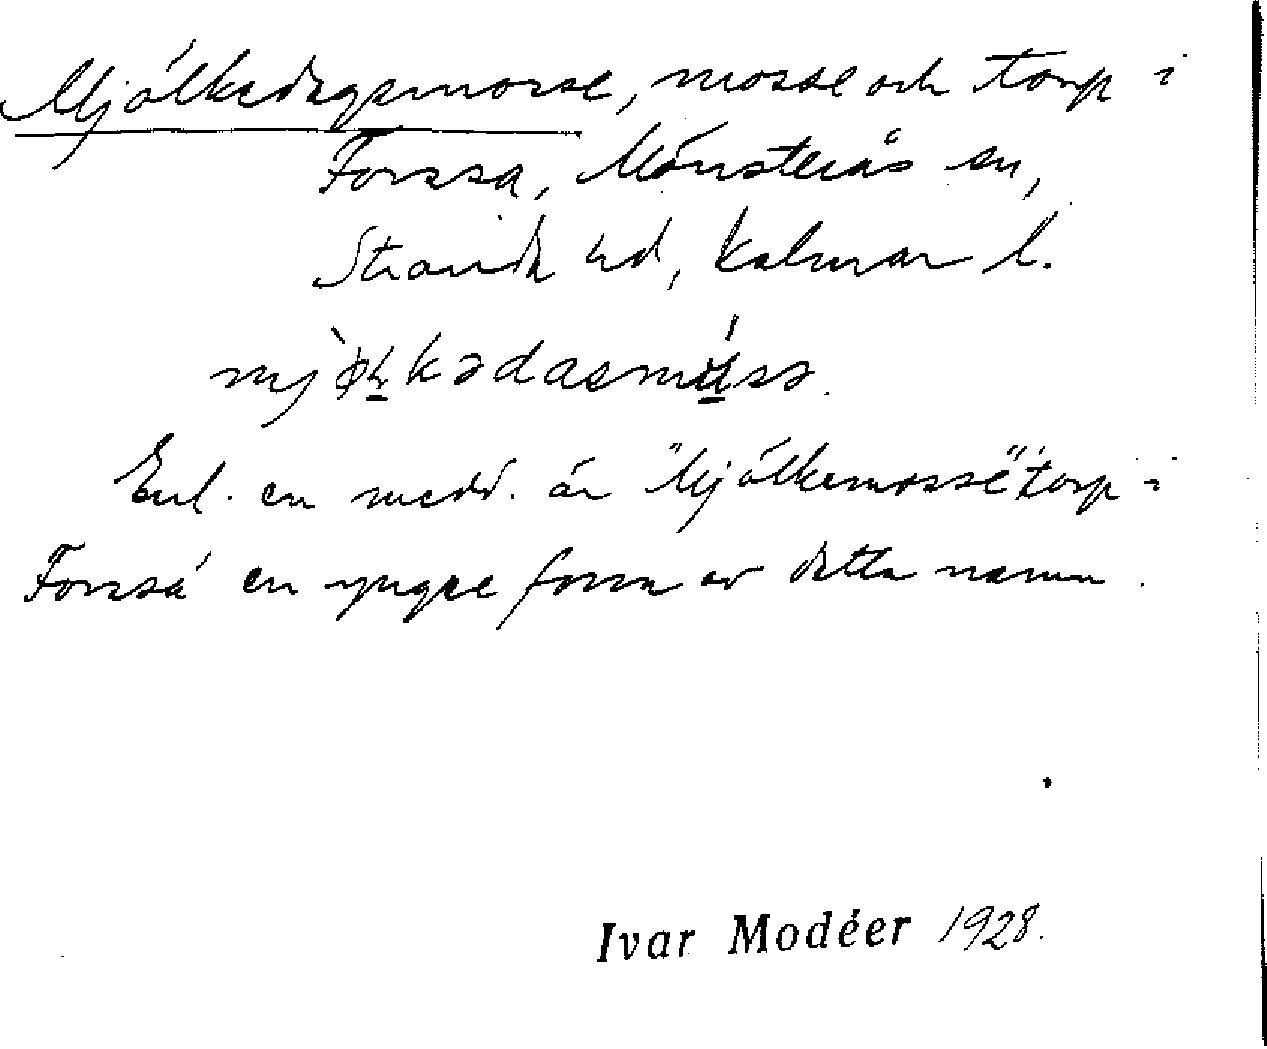 Mjölkedagemosse, mosse och torp i
Forssa, Mönsterås sn,
Stranda hd, Kalmar l.
Enl. en medd. är "Mjölkemosse" torp i
Forsså en yngre form av detta namn.
Ivar Modéer 1928.